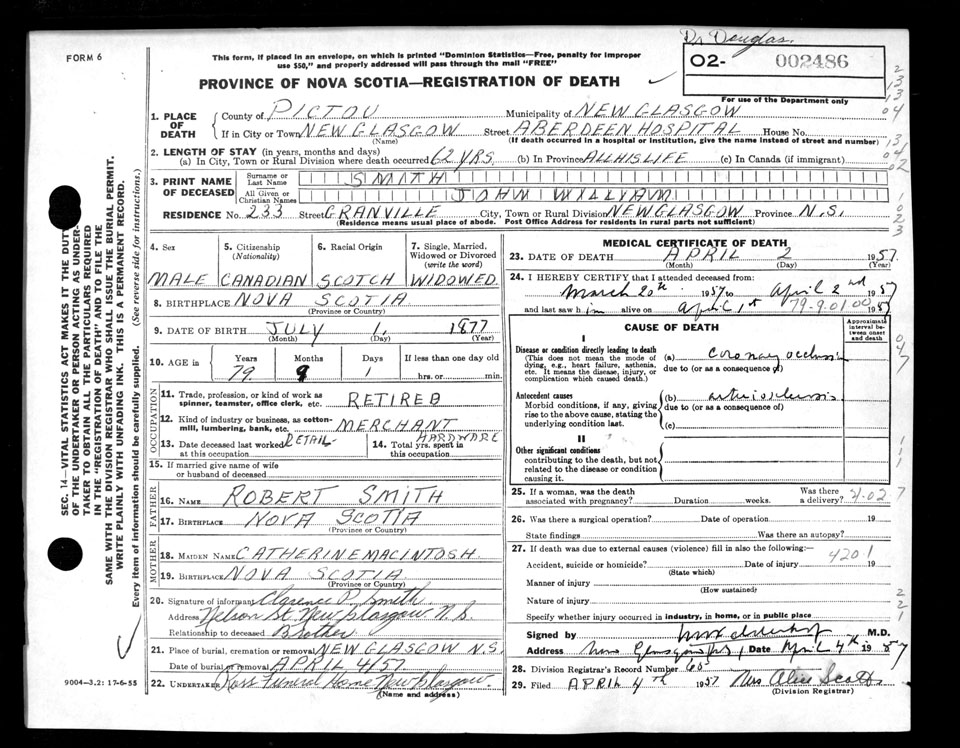 Dr Douglas.
FORM 6
This form, if placed in an envelope, on which is printed "Dominion Statistics—Free, penalty for improper
use $50," and properly addressed will pass through the mail "FREE"
O2- 002486
PROVINCE OF NOVA SCOTIA—REGISTRATION OF DEATH
For use of the Department only
1. PLACE OF DEATH
County of PICTOU Municipality of NEW GLASGOW
If in City or Town NEW GLASGOW Street ABERDEEN HOSPITAL House No.
(Name) (If death occurred in a hospital or institution, give the name instead of street and number)
2. LENGTH OF STAY (in years, months and days)
(a) In City, Town or Rural Division where death occurred 62 YRS. (b) In Province ALL HIS LIFE (c) In Canada (if immigrant)
3. PRINT NAME OF DECEASED
Surname or Last Name SMITH
All Given or Christian Names JOHN WILLIAM
RESIDENCE No. 233 Street GRANVILLE City, Town or Rural Division NEW GLASGOW Province N.S.
(Residence means usual place of abode. Post Office Address for residents in rural parts not sufficient)
SEC. 14—VITAL STATISTICS ACT MAKES IT THE DUTY
OF THE UNDERTAKER OR PERSON ACTING AS UNDER-
TAKER TO OBTAIN ALL THE PARTICULARS REQUIRED
IN THE "REGISTRATION OF DEATH" AND TO FILE THE
SAME WITH THE DIVISION REGISTRAR WHO SHALL ISSUE THE BURIAL PERMIT.
WRITE PLAINLY WITH UNFADING INK. THIS IS A PERMANENT RECORD.
Every item of information should be carefully supplied. (See reverse side for instructions.)
4. Sex 5. Citizenship 6. Racial Origin 7. Single, Married,
(Nationality) Widowed or Divorced
(write the word)
MALE CANADIAN SCOTCH WIDOWED
8. BIRTHPLACE NOVA SCOTIA
(Province or Country)
9. DATE OF BIRTH JULY 1, 1877
(Month) (Day) (Year)
10. AGE in Years Months Days If less than one day old
79 9 1 hrs. or min.
OCCUPATION
11. Trade, profession, or kind of work as
spinner, teamster, office clerk, etc. RETIRED
12. Kind of industry or business, as cotton-
mill, lumbering, bank, etc. MERCHANT
13. Date deceased last worked at this occupation RETAIL
14. Total yrs. spent in this occupation HARDWARE
15. If married give name of wife
or husband of deceased
FATHER
16. NAME ROBERT SMITH
17. BIRTHPLACE NOVA SCOTIA
(Province or Country)
MOTHER
18. MAIDEN NAME CATHERINE MACINTOSH.
19. BIRTHPLACE NOVA SCOTIA
(Province or Country)
20. Signature of informant Clarence P. Smith.
Address Nelson St. New Glasgow N.S.
Relationship to deceased Brother
21. Place of burial, cremation or removal NEW GLASGOW N.S.
Date of burial or removal APRIL 4/57
22. UNDERTAKER Ross Funeral Home New Glasgow.
(Name and address)
9004-3.2: 17-6-55
MEDICAL CERTIFICATE OF DEATH
23. DATE OF DEATH APRIL 2 1957
(Month) (Day) (Year)
24. I HEREBY CERTIFY that I attended deceased from:
March 20th 1957 to April 2nd 1957
and last saw him alive on April 1st 1957
79-9.01.00
CAUSE OF DEATH
Approximate interval between onset and death
I
Disease or condition directly leading to death
(This does not mean the mode of
dying, e.g., heart failure, asthenia,
etc. It means the disease, injury, or
complication which caused death.)
(a) coronary occlusion
due to (or as a consequence of)
Antecedent causes
Morbid conditions, if any, giving
rise to the above cause, stating the
underlying condition last.
(b) arteriosclerosis
due to (or as a consequence of)
(c)
II
Other significant conditions
contributing to the death, but not
related to the disease or condition
causing it.
25. If a woman, was the death
associated with pregnancy? Duration weeks. Was there
a delivery?
26. Was there a surgical operation? Date of operation 19
State findings Was there an autopsy?
27. If death was due to external causes (violence) fill in also the following:— 4201
Accident, suicide or homicide? Date of injury 19
(State which)
Manner of injury
(How sustained)
Nature of injury
Specify whether injury occurred in industry, in home, or in public place
Signed by M.D.
Address New Glasgow, NS, Date April 4th 1957
28. Division Registrar's Record Number 65
29. Filed APRIL 4TH 1957 Mrs Alex Scott.
(Division Registrar)